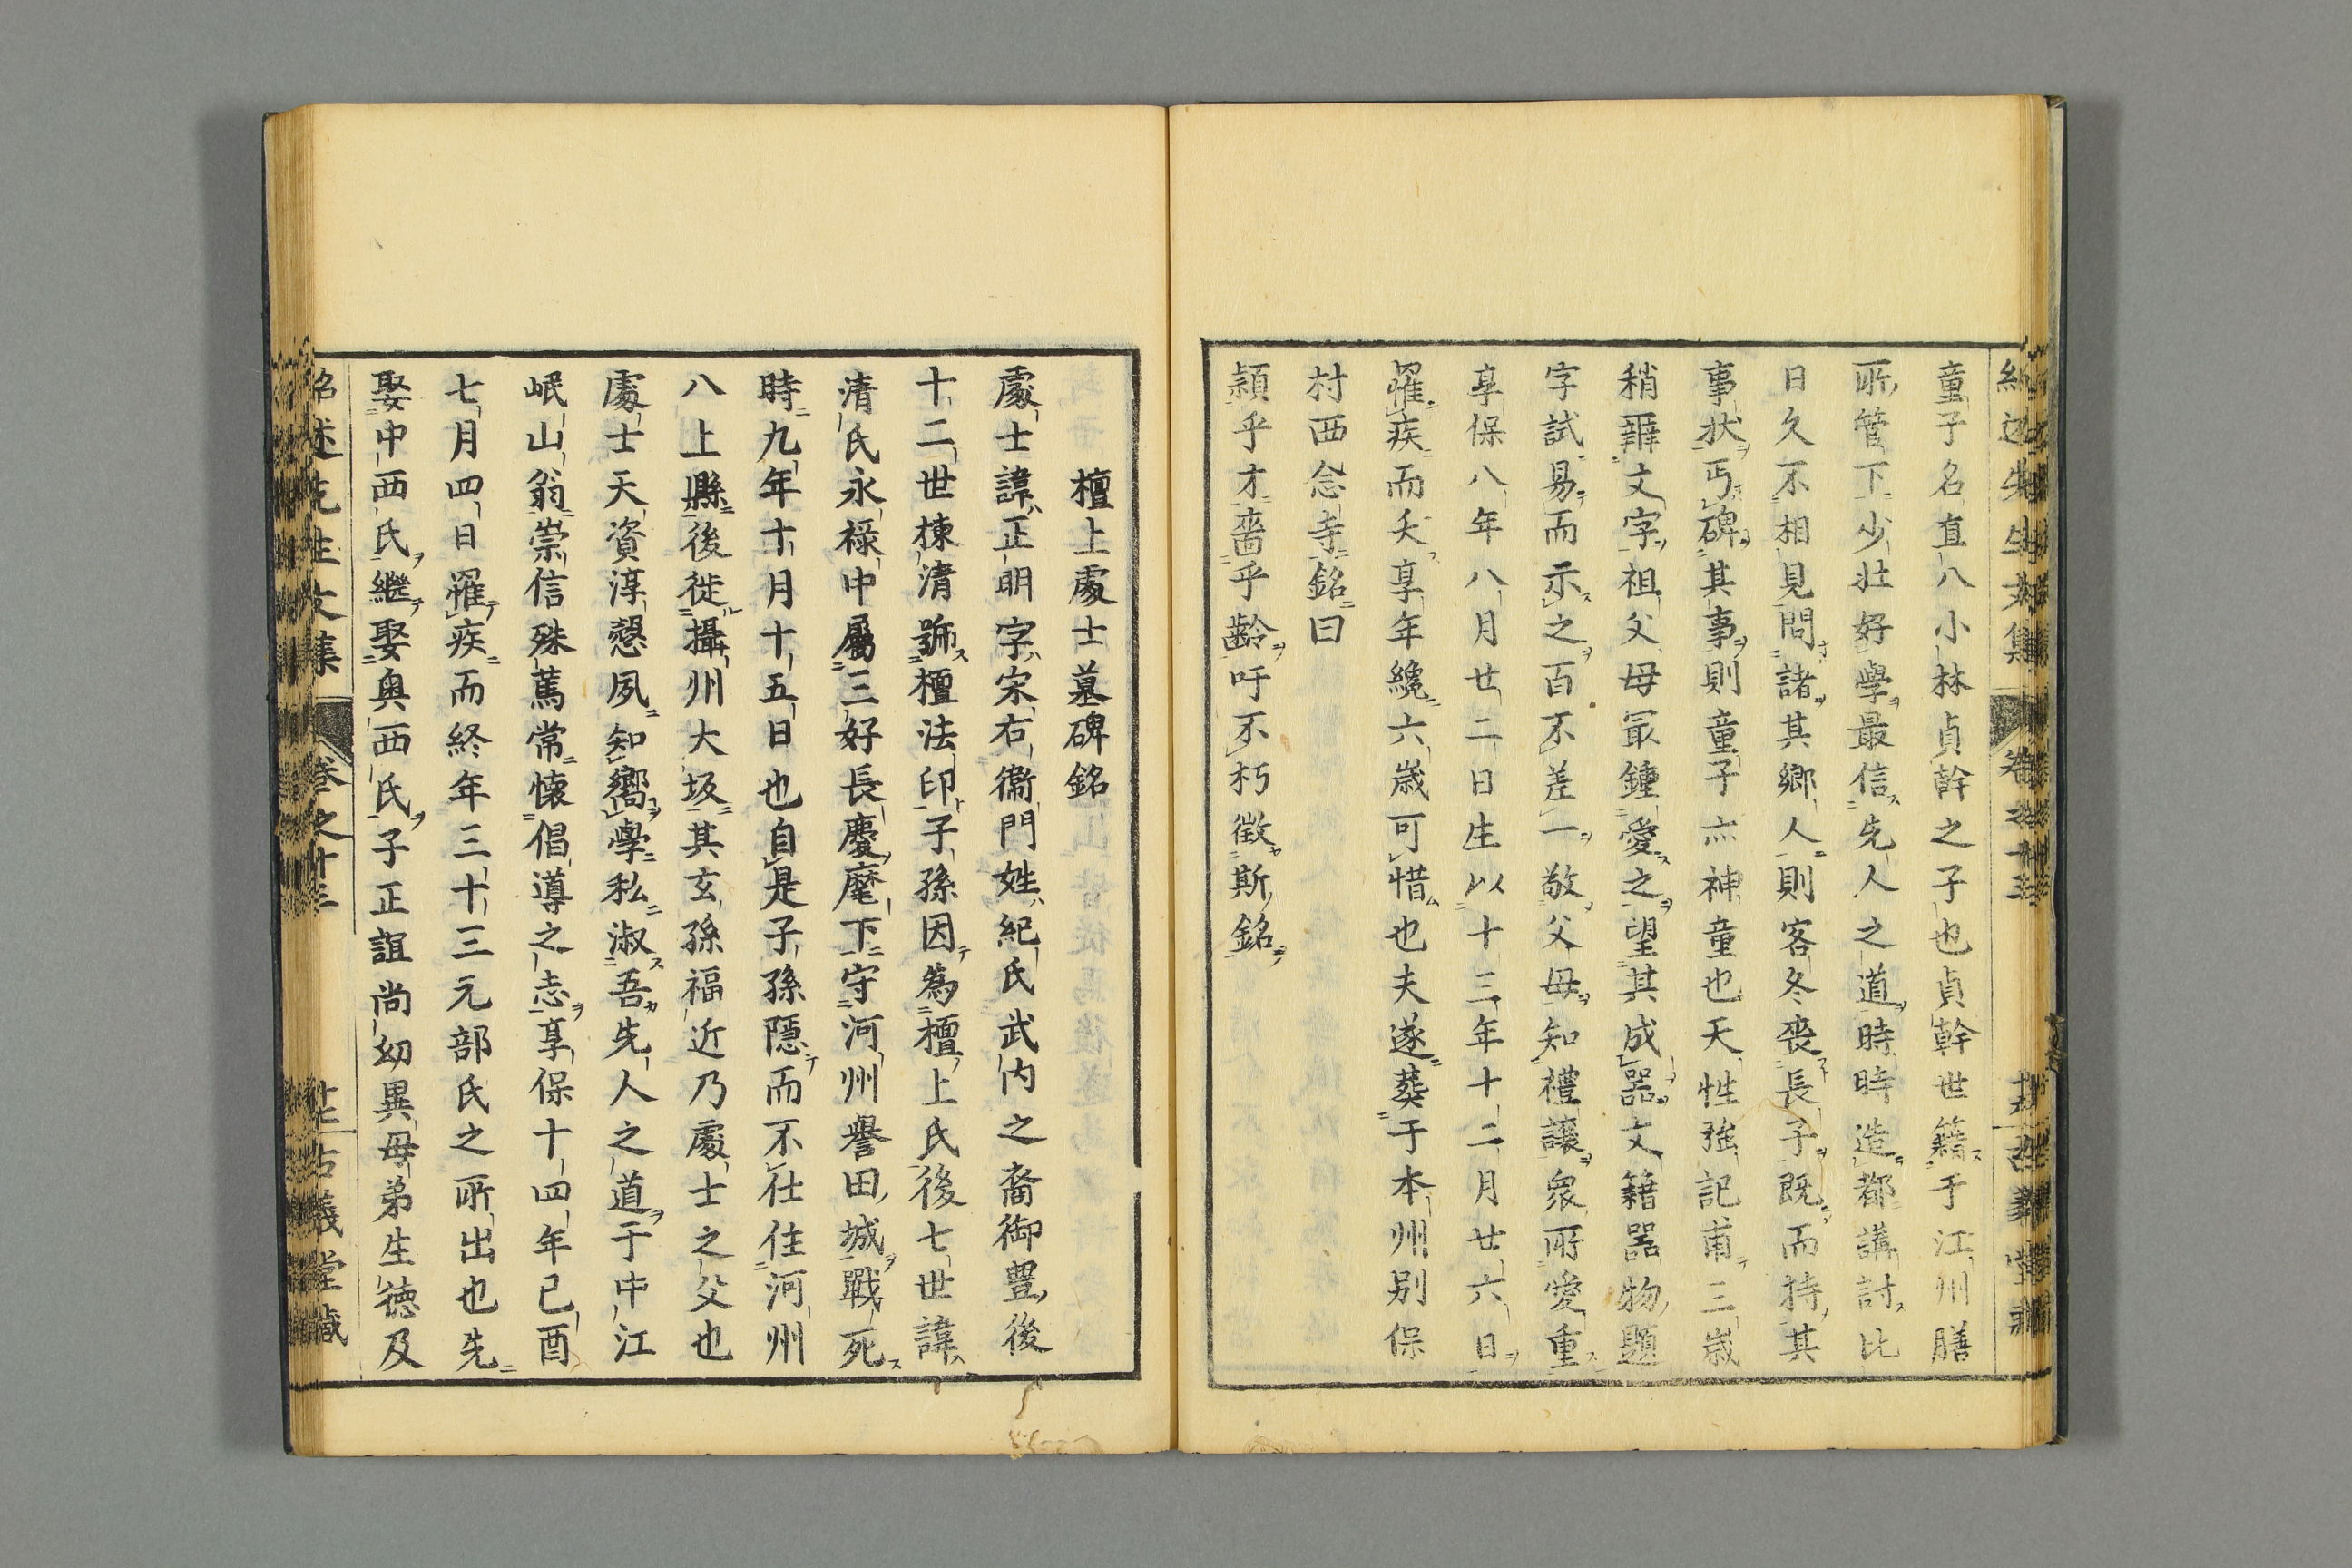 童子名直八小林貞幹之子也貞幹世籍于江州膳
所管下少壯好學最信先人之道時時造都講討比
日久不相見問諸其郷人則客冬喪長子既而持其
事狀丐碑其事則童子亦神童也天性強記甫三歳
稍辨文字祖父母冣鍾愛之望其成器文籍器物題
字試易而示之百不差一敬父母知禮讓衆所愛重
享保八年八月廿二日生以十三年十二月廿六日
罹疾而夭享年纔六歳可惜也夫遂葬于本州別保
村西念寺銘曰
頴乎才嗇乎齡吁不朽徴斯銘
檀上處士墓碑銘
處士諱正明字宋右衞門姓紀氏武内之裔御豊後
十二世棟清號檀法印子孫因為檀上氏後七世諱
清氏永禄中屬三好長慶麾下守河州譽田城戰死
時九年十月十五日也自是子孫隠而不仕住河州
八上縣後徙攝州大坂其玄孫福近乃處士之父也
處士天資淳愨夙知嚮學私淑吾先人之道于中江
岷山翁崇信殊篤常懷倡導之志享保十四年已酉
七月四日罹疾而終年三十三元部氏之所出也先
娶中西氏繼娶奥西氏子正誼尚幼異母弟生徳及
紹述先生文集 卷之十三 十七 古義堂藏